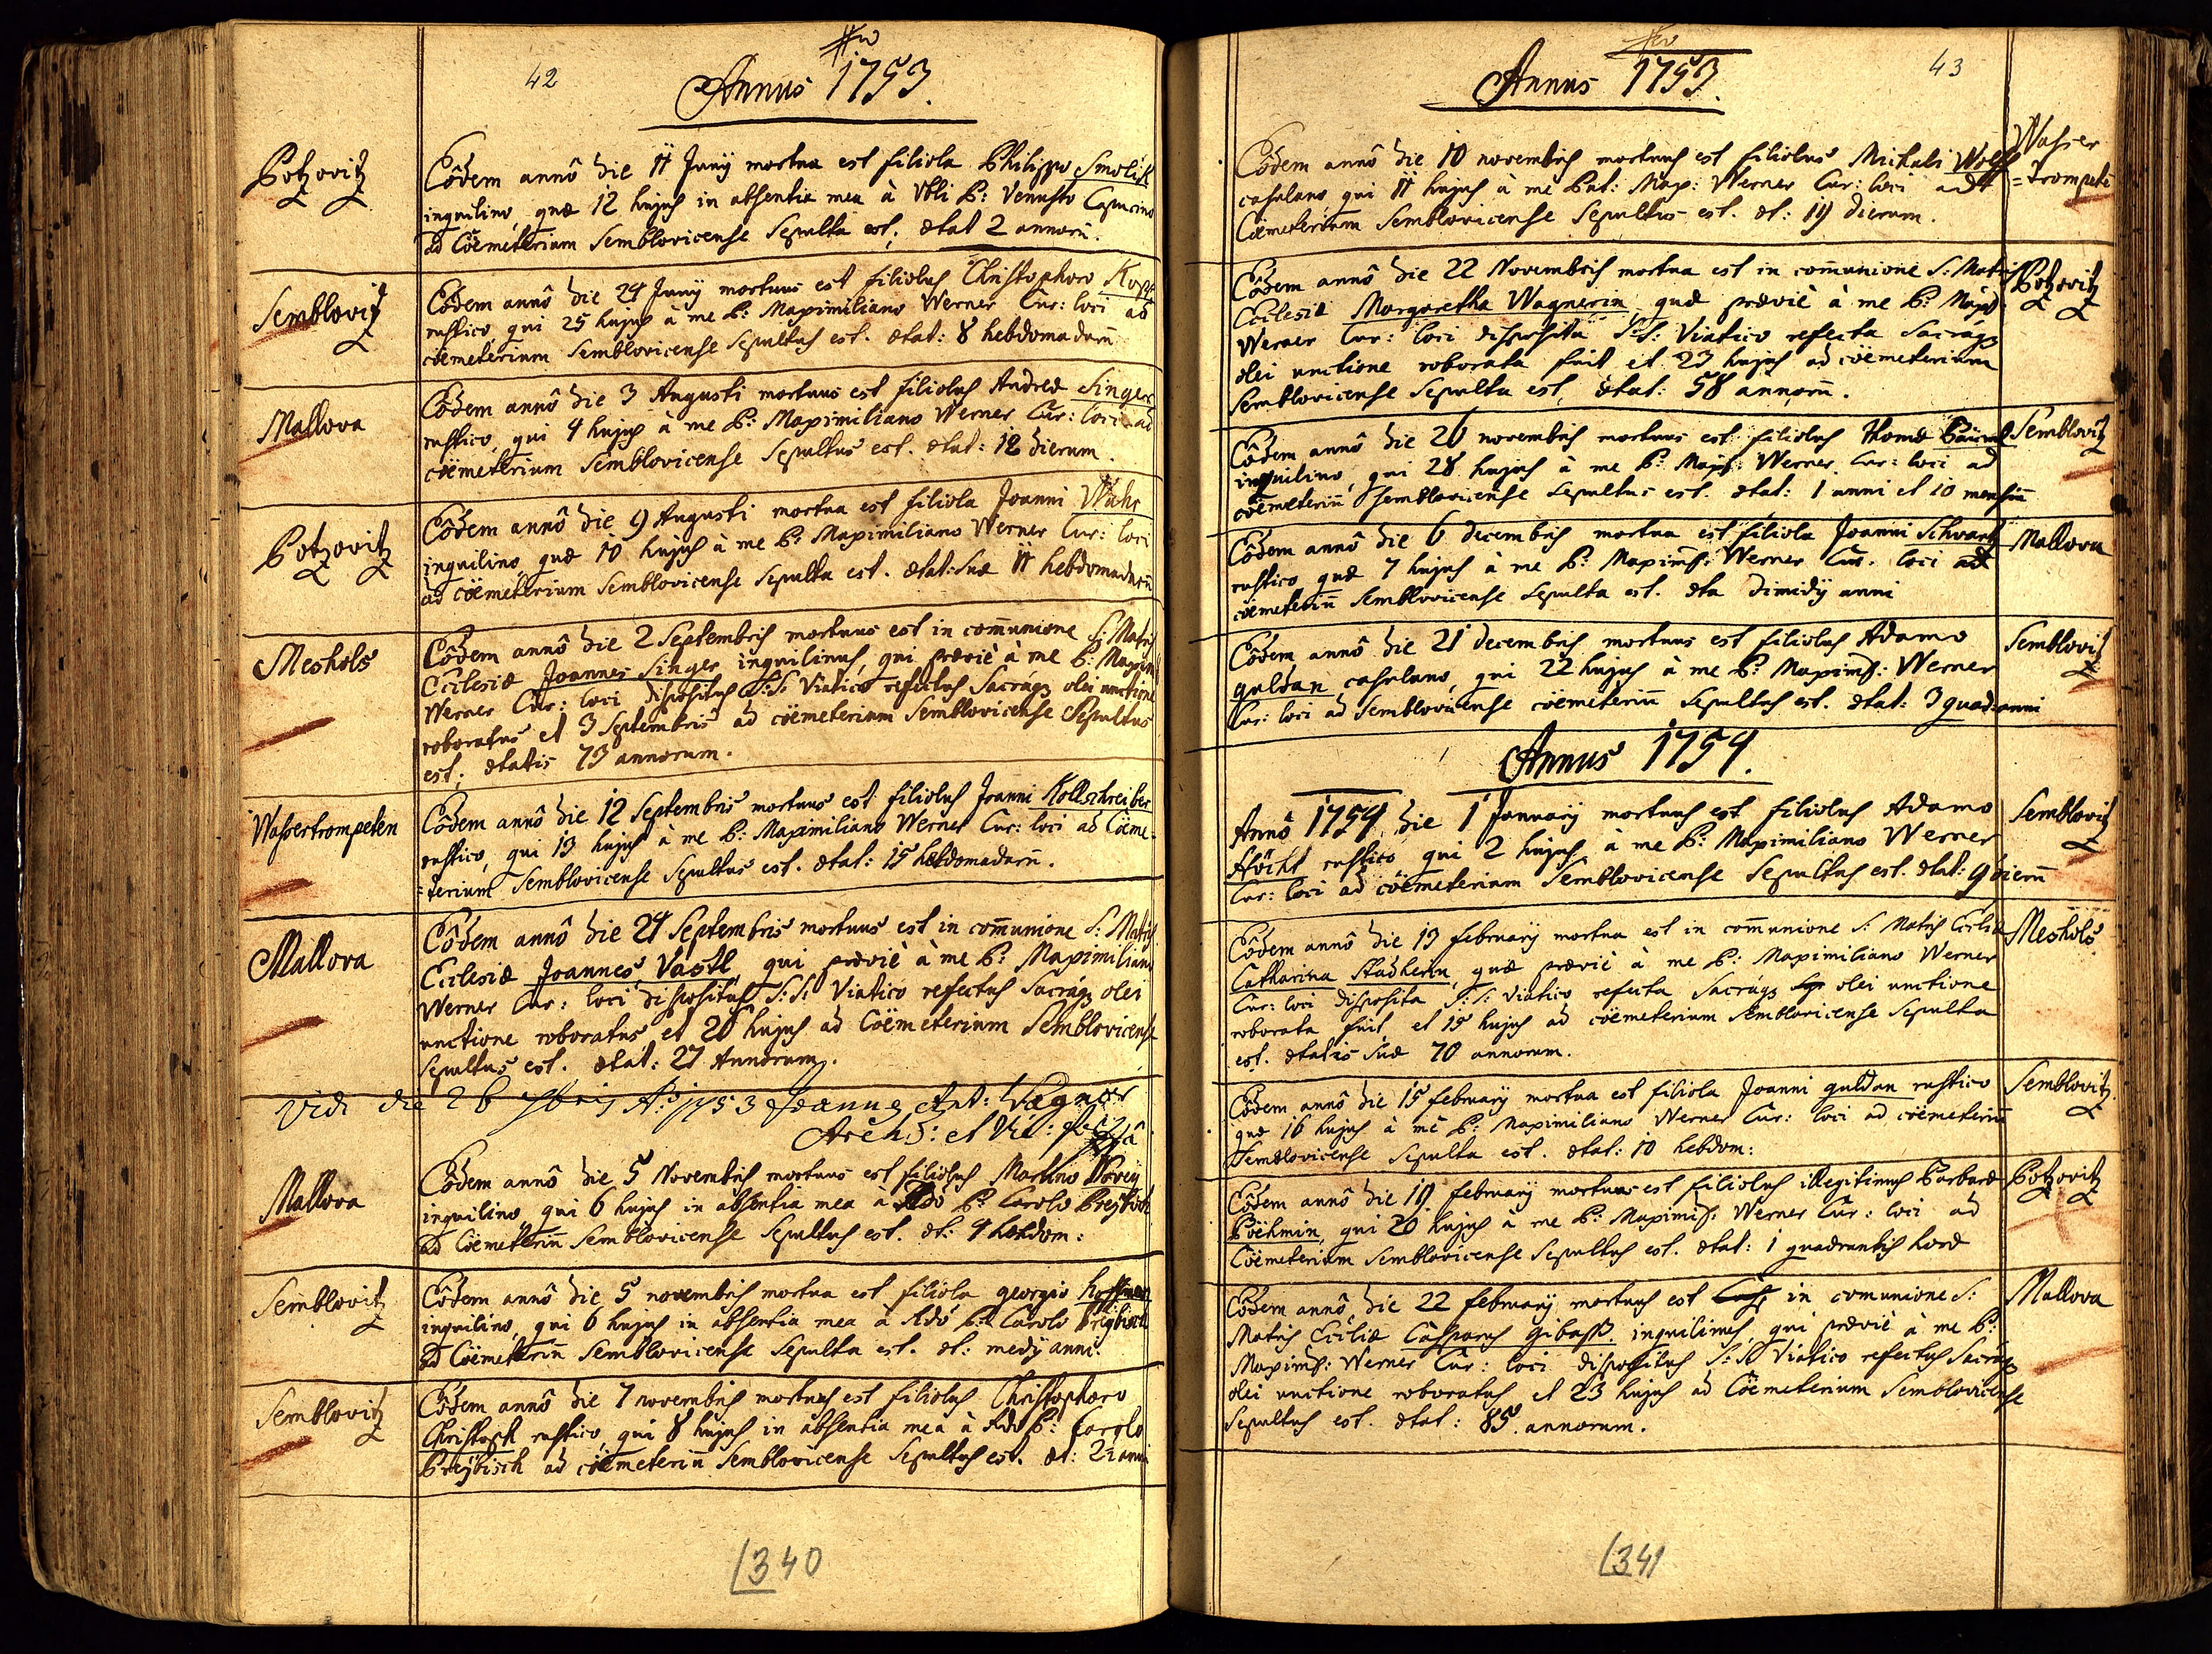 42
Annus 1753.
Botzovitz
Eôdem annô die 11 Junij mortua est filiola Philippo Smolik
inquilino, quæ 12 hujus in absentia mea à Vbli P: Venusto Capucino
ad Cöemeterium Semblovicense Sepulta est, ætat 2 annorū.
Semblovitz
Eôdem annô die 24 Junij mortuus est filiolus Christophoro Kopp
rustico, qui 25 hujus à me P: Maximiliano Werner Cur: loci ad
cöemeterium Semblovicense Sepultus est. ætat: 8 hebdomadarū
Mallova
Eôdem annô die 3 Augusti mortuus est filiolus Andreæ Singer
rustico, qui 4 hujus à me P: Maximiliano Werner Cur: loci ad
cöemeterium Semblovicense Sepultus est. ætat: 12 dierum.
Botzovitz
Eôdem annô die 9 Augusti mortua est filiola Joanni
inquilino, quæ 10 hujus à me P: Maximiliano Werner Cur: loci
ad cöemeterium Semblovicense Sepulta est. ætat: suæ 11 hebdomadarū
Meshols
Eôdem annô die 2 Septembris mortuus est in com̄unione S: Matris
Ecclesiæ Joannes Singer inquilinus, qui præviè à me P: Maxim:
Werner Cur: loci dispositus S:S: Viatico refectus Sacráqz olei unctione
roboratus et 3 Septembris ad cöemeterium Semblovicense Sepultus
est; ætatis 73 annorum.
Wassertrompeten
Eôdem annô die 12 Septembris mortuus est filiolus Joanni Kollschreiber
rustico, qui 13 hujus à me P: Maximiliano Werner Cur: loci ad Cöeme-
=terium Semblovicense Sepultus est. ætat: 15 hebdomadarū.
Mallova
Eôdem annô die 24 Septembris mortuus est in com̄unione S: Matris
Ecclesiæ Joannes Vastl, qui præviè à me P: Maximiliano
Werner Cur: loci dispositus S:S: Viatico refectus Sacráqz olei
unctione roboratus, et 26 hujus ad Cöemeterium Semblovicense
Sepultus est. ætat: 27 Annorum.
Vidi die 26 7bris Ao: 1753 Joannes Ant: Wagner
Archid: et Vic:
Mallova
Eôdem annô die 5 Novembris mortuus est filiolus Martino
inquilino, qui 6 hujus in absentia mea à Rdo P: Carolo
ad Cöemeteriū Semblovicense Sepultus est. æt: 4 hebdom:
Semblovitz
Eôdem annô die 5 novembris mortua est filiola georgio Hoffman
inquilino, qui 6 hujus in absentia mea à Rdô P: Carolo
ad Cöemeteriū Semblovicense Sepulta est. æt: medij anni.
Semblovitz
Eôdem annô die 7 novembris mortuus est filiolus Christophoro
Christoph rustico, qui 8 hujus in absentia mea à Rdo P: Carolo
ad cöemeteriū Semblovicense Sepultus est. æt: 2½ anni
340
43
Annus 1753.
Wasser
=trompetē
Eôdem annô die 10 novembris mortuus est filiolus Michaeli Wolff
casulano, qui 11 hujus à me Pat: Max: Werner Cur: loci ad
Cöemeterium Semblovicense Sepultus est. æt: 19 dierum.
Botzovitz
Eôdem annô die 22 Novembris mortua est in com̄unione S: Matris
Ecclesiæ Margaretha Wagnerin, quæ præviè à me P: Max:
Werner Cur: loci disposita S:S: Viatico refecta Sacráqz
olei unctione roborata fuit, et 23 hujus ad cöemeterium
Semblovicense Sepulta est, ætat: 58 annorū.
Semblovitz
Eôdem annô die 26 novembris mortuus est filiolus Thomæ
inquilino, qui 28 hujus à me P: Max: Werner Cur: loci ad
cöemeteriū Semblovicense Sepultus est. ætat: 1 anni et 10 mensiū
Mallova
Eôdem annô die 6 decembris mortua est filiola Joanni Schvartz
rustico, quæ 7 hujus à me P: Maxim: Werner Cur: loci ad
cöemeteriū Semblovicense Sepulta est. æta dimidij anni
Semblovitz
Eôdem annô die 21 decembris mortuus est filiolus Adamo
guldan casulano, qui 22 hujus à me P: Maxim: Werner
Cur: loci ad Semblovicense cöemeteriū Sepultus est. ætat: 3 quad: anni
Annus 1754.
Semblovitz
Annô 1754 die 1 January mortuus est filiolus Adamo
Stöckl rustico, qui 2 hujus à me P: Maximiliano Werner
Cur: loci ad cöemeterium Semblovicense Sepultus est. ætat: 9 dierū
Meshols
Eôdem annô die 13 february mortua est in com̄unione S: Matris Ecclæ
Catharina Stadlerin, quæ præviè à me P: Maximiliano Werner
Cur: loci disposita S:S: Viatico refecta Sacráqz olei unctione
roborata fuit, et 15 hujus ad cöemeterium Semblovicense Sepulta
est. ætatis suæ 70 annorum.
Semblovitz
Eôdem annô die 15 february mortua est filiola Joanni guldan rustico
quæ 16 hujus à me P: Maximiliano Werner Cur: loci ad cöemeteriū
Semblovicense Sepulta est. ætat: 10 hebdom:
Botzovitz
Eôdem annô die 19 february mortuus est filiolus illegitimus Barbaræ
Böehmin, qui 20 hujus à me P: Maxim: Werner Cur: loci ad
Cöemeterium Semblovicense Sepultus est. ætat: 1 quadrantis horæ
Mallova
Eôdem annô die 22 february mortuus est in comunione S:
Matris Eccliæ Casparus Gibass inquilinus, qui præviè à me P:
Maxim: Werner Cur: loci dispositus S:S: Viatico refectus Sacráqz
olei unctione roboratus, et 23 hujus ad Cöemeterium Semblovicense
Sepultus est. ætat: 85 annorum.
341